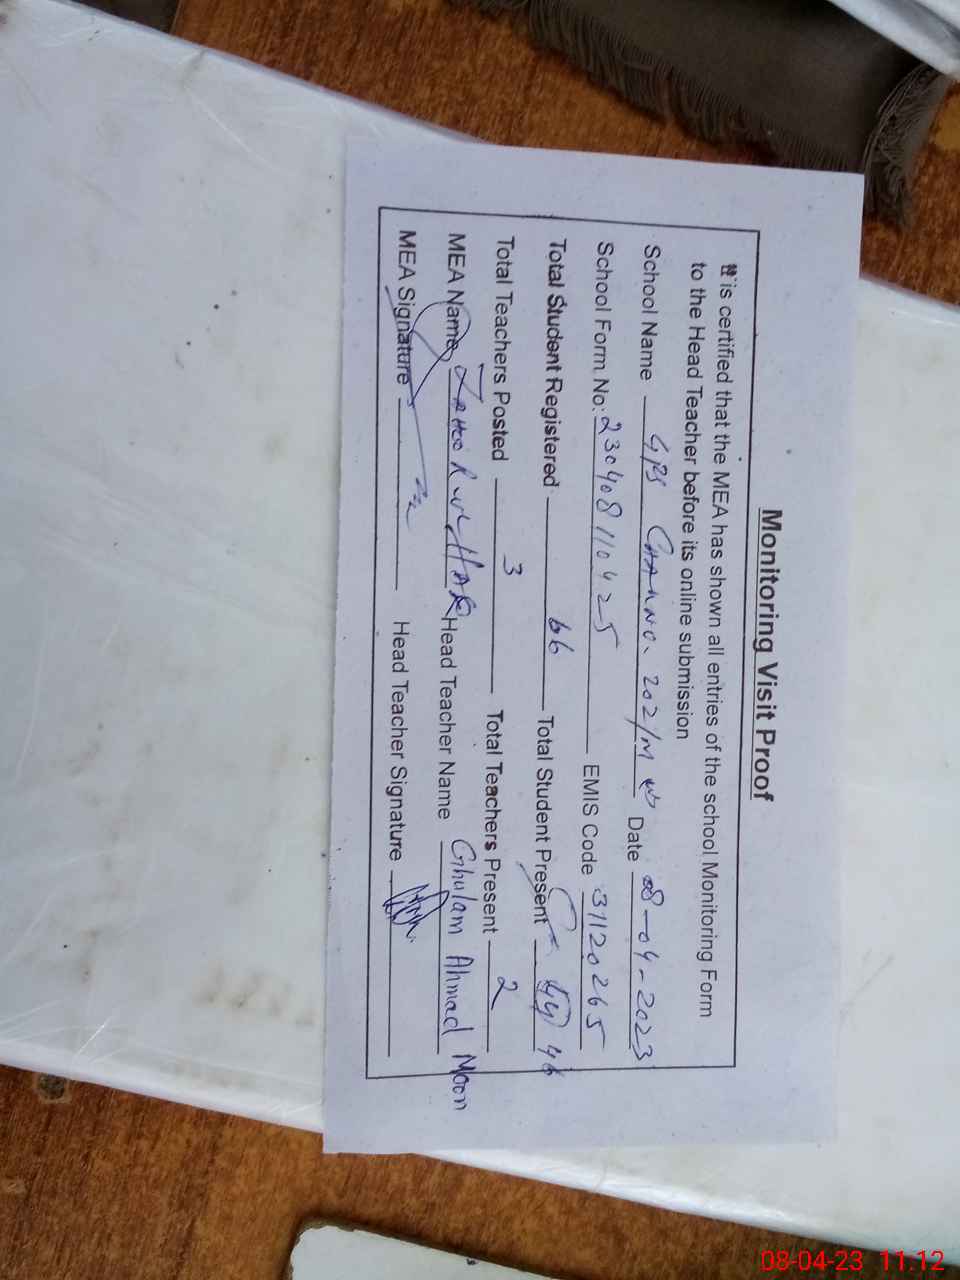 Monitoring Visit Proof
It is certified that the MEA has shown all entries of the school Monitoring Form
to the Head Teacher before its online submission
School Name GPS CHAK NO. 202/M Date 08-04-2023
School Form No: 230408110425 EMIS Code 31120265
Total Student Registered 66 Total Student Present 46
Total Teachers Posted 3 Total Teachers Present 2
MEA Name Head Teacher Name Ghulam Ahmad Moon
MEA Signature Head Teacher Signature
08-04-23 11:12